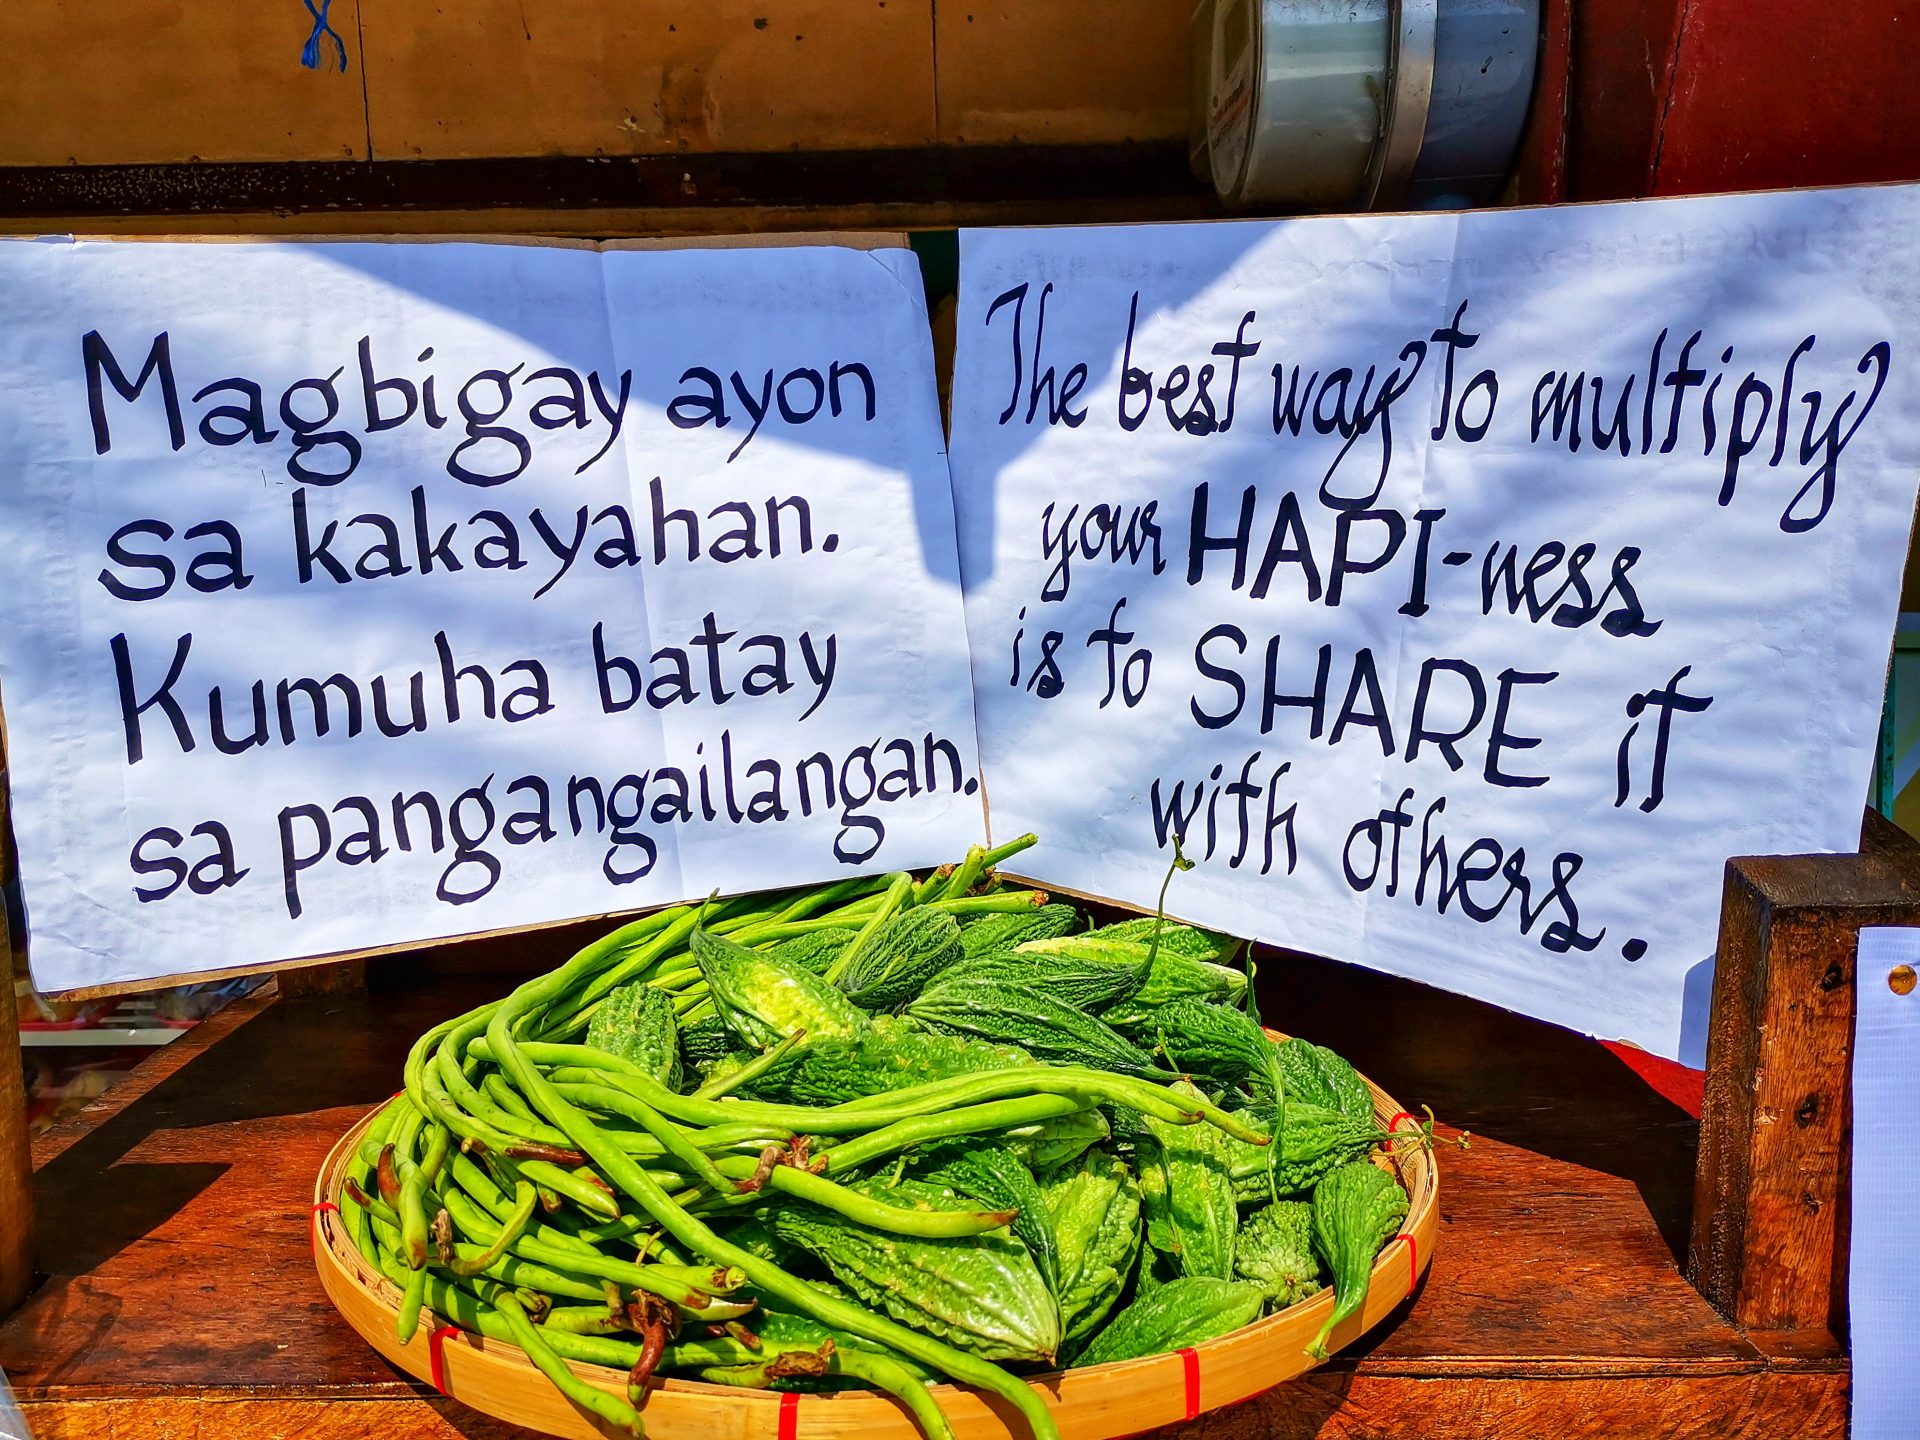 Magbigay ayon
sa kakayahan.
Kumuha batay
sa pangangailangan.
The best way to multiply
your HAPI-ness
is to SHARE it
with others.